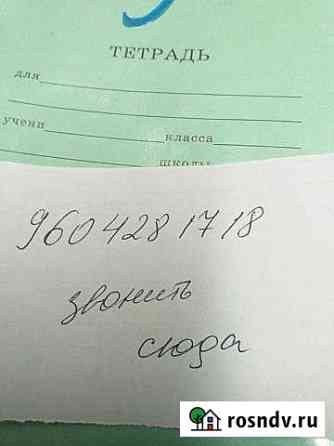 ТЕТРАДЬ
для
учени класса
школы
9604281718
звонить
сюда
rosndv.ru